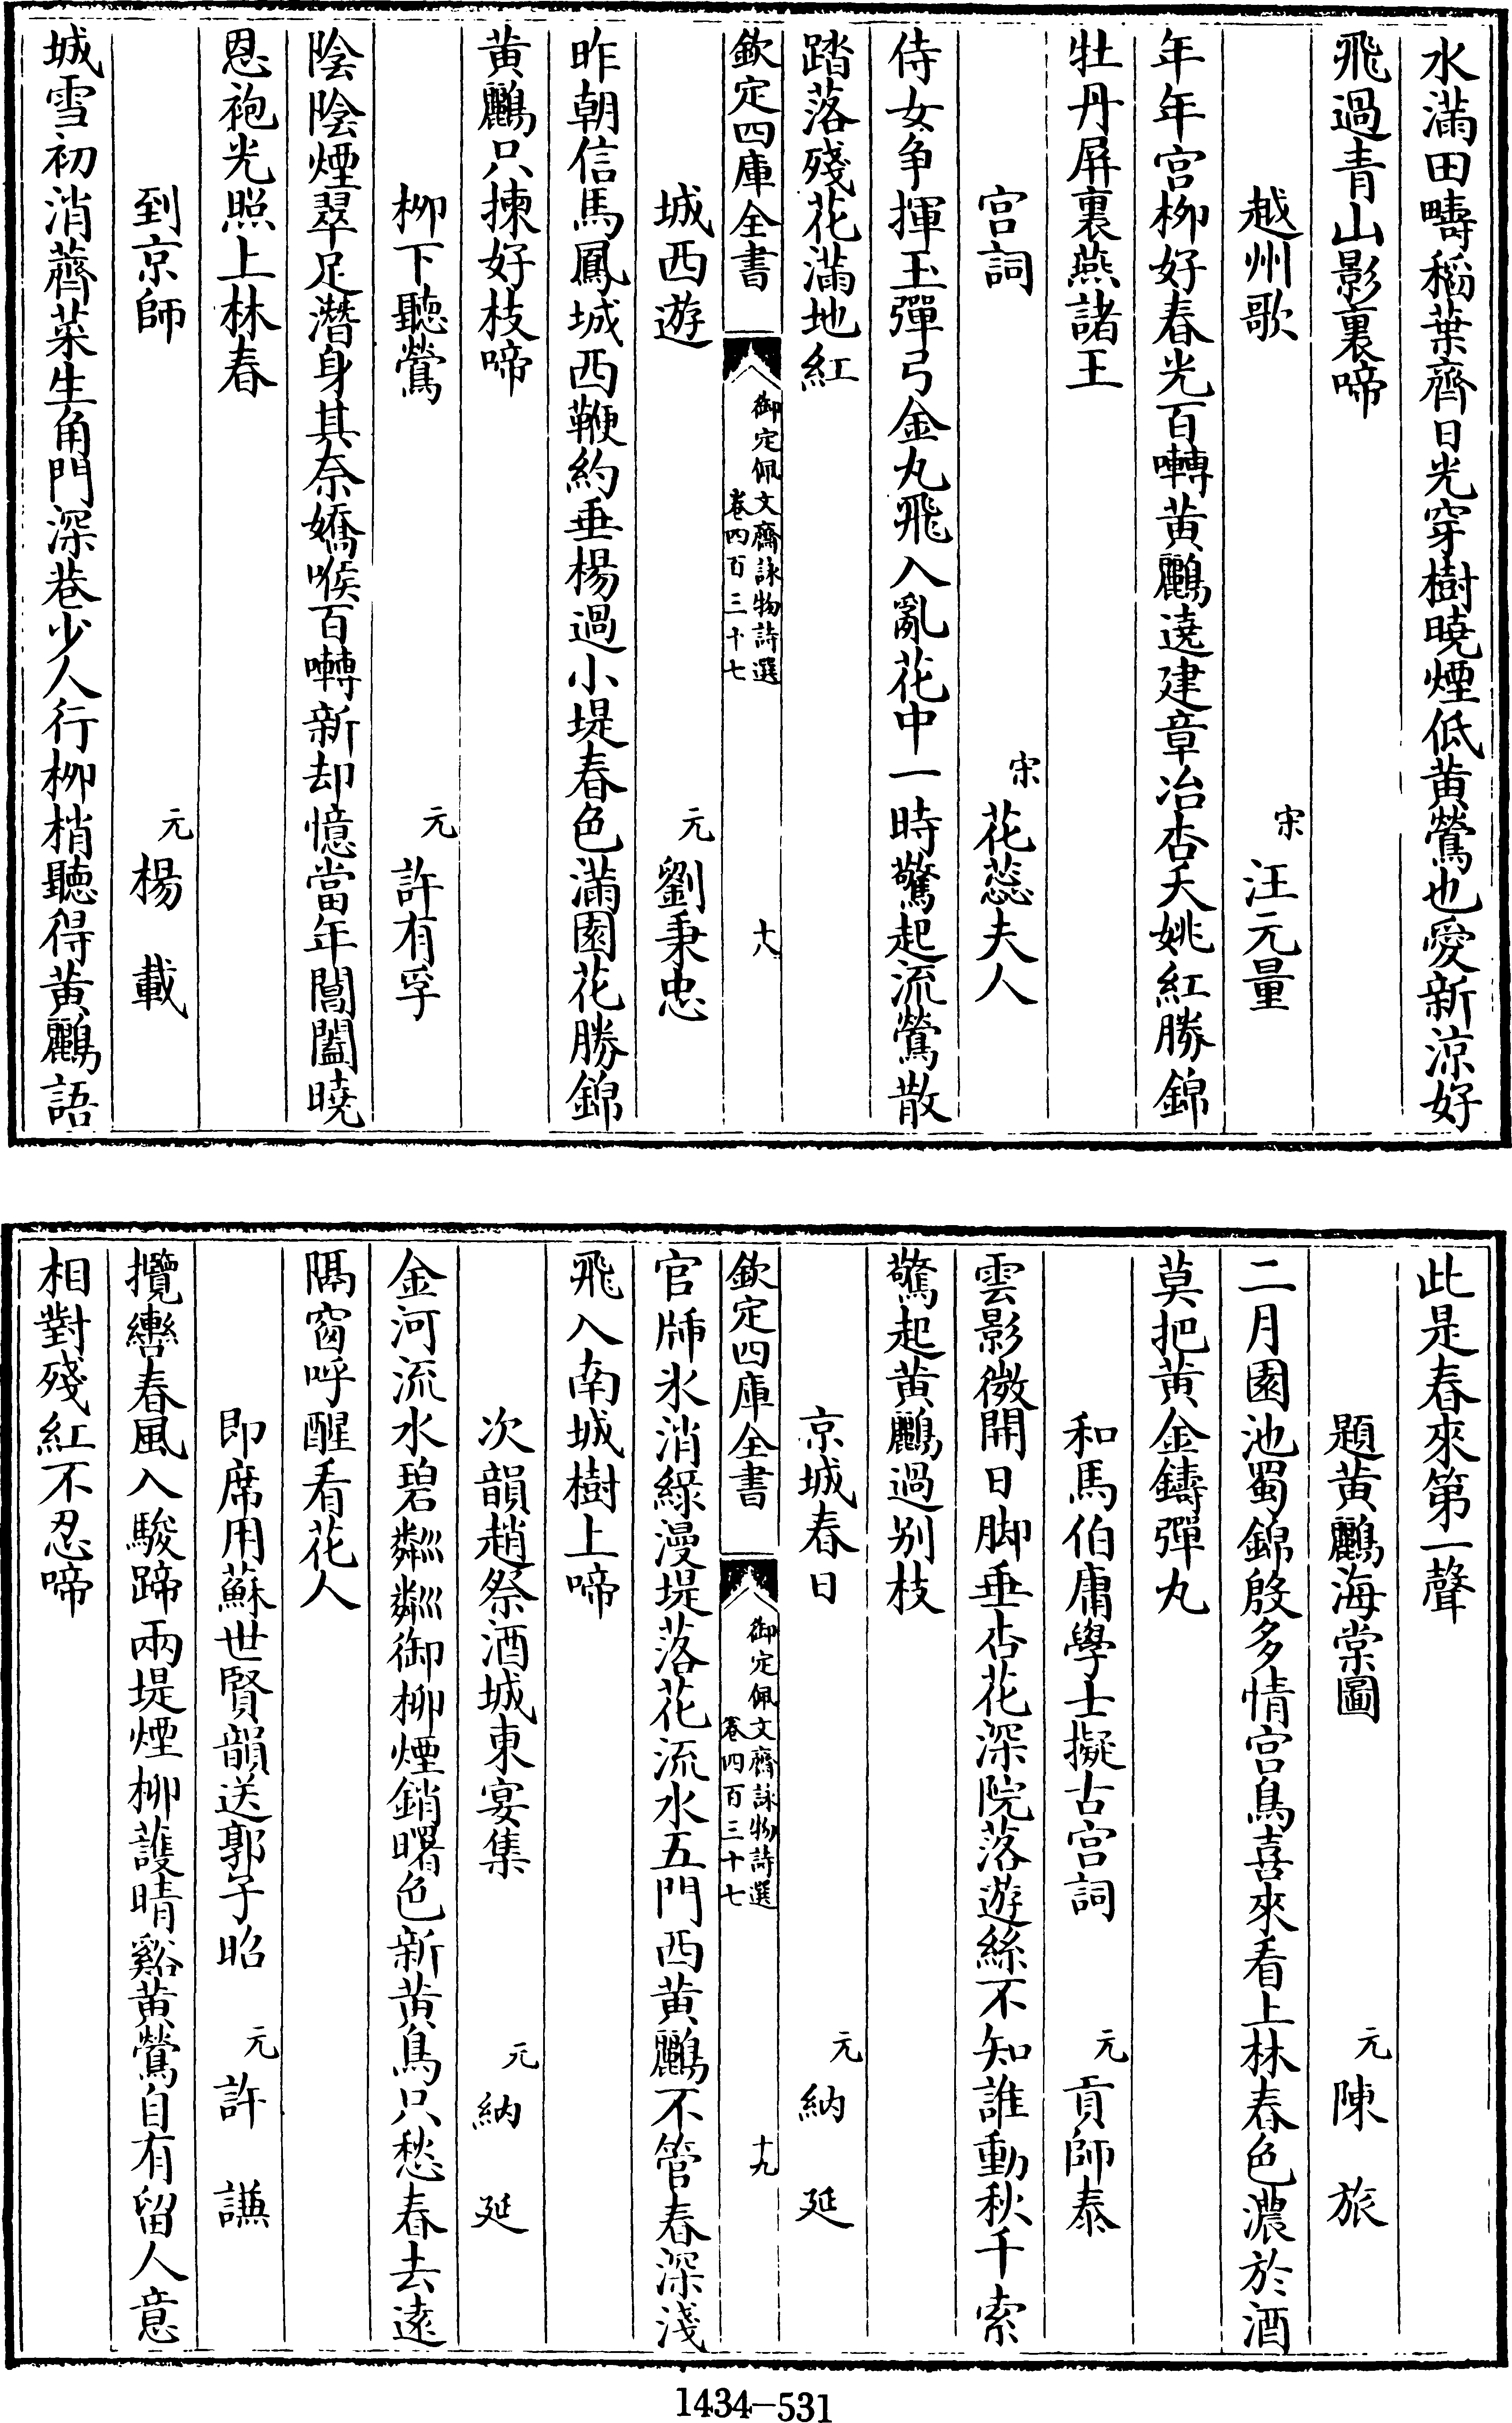 水滿田疇稻葉齊日光穿樹曉煙低黄鶯也愛新涼好
飛過青山影裏啼
越州歌 宋 汪元量
年年宫柳好春光百囀黄鸝遶建章冶杏夭姚紅勝錦
牡丹屏裏燕諸王
宫詞 宋 花蕊夫人
侍女争揮玉彈弓金丸飛入亂花中一時驚起流鶯散
踏落殘花滿地紅
欽定四庫全書 御定佩文齋詠物詩選 卷四百三十七 十八
城西遊 元 劉秉忠
昨朝信馬鳳城西鞭約垂楊過小堤春色滿園花勝錦
黄鸝只揀好枝啼
柳下聽鶯 元 許有孚
陰陰煙翠足潛身其奈嬌喉百囀新却憶當年閶闔曉
恩袍光照上林春
到京師 元 楊載
城雪初消薺菜生角門深巷少人行柳梢聽得黄鸝語
此是春來第一聲
題黄鸝海棠圖 元 陳旅
二月園池蜀錦殷多情宫鳥喜來看上林春色濃於酒
莫把黄金鑄彈丸
和馬伯庸學士擬古宫詞 元 貢師泰
雲影微開日脚垂杏花深院落遊絲不知誰動秋千索
驚起黄鸝過别枝
京城春日 元 納延
欽定四庫全書 御定佩文齋詠物詩選 卷四百三十七 十九
官牐氷消緑漫堤落花流水五門西黄鸝不管春深淺
飛入南城樹上啼
次韻趙祭酒城東宴集 元 納延
金河流水碧粼粼御柳煙銷曙色新黄鳥只愁春去遠
隔窗呼醒看花人
即席用蘇世賢韻送郭子昭 元 許謙
攬轡春風入駿蹄兩堤煙柳䕶晴谿黄鶯自有留人意
相對殘紅不忍啼
1434-531